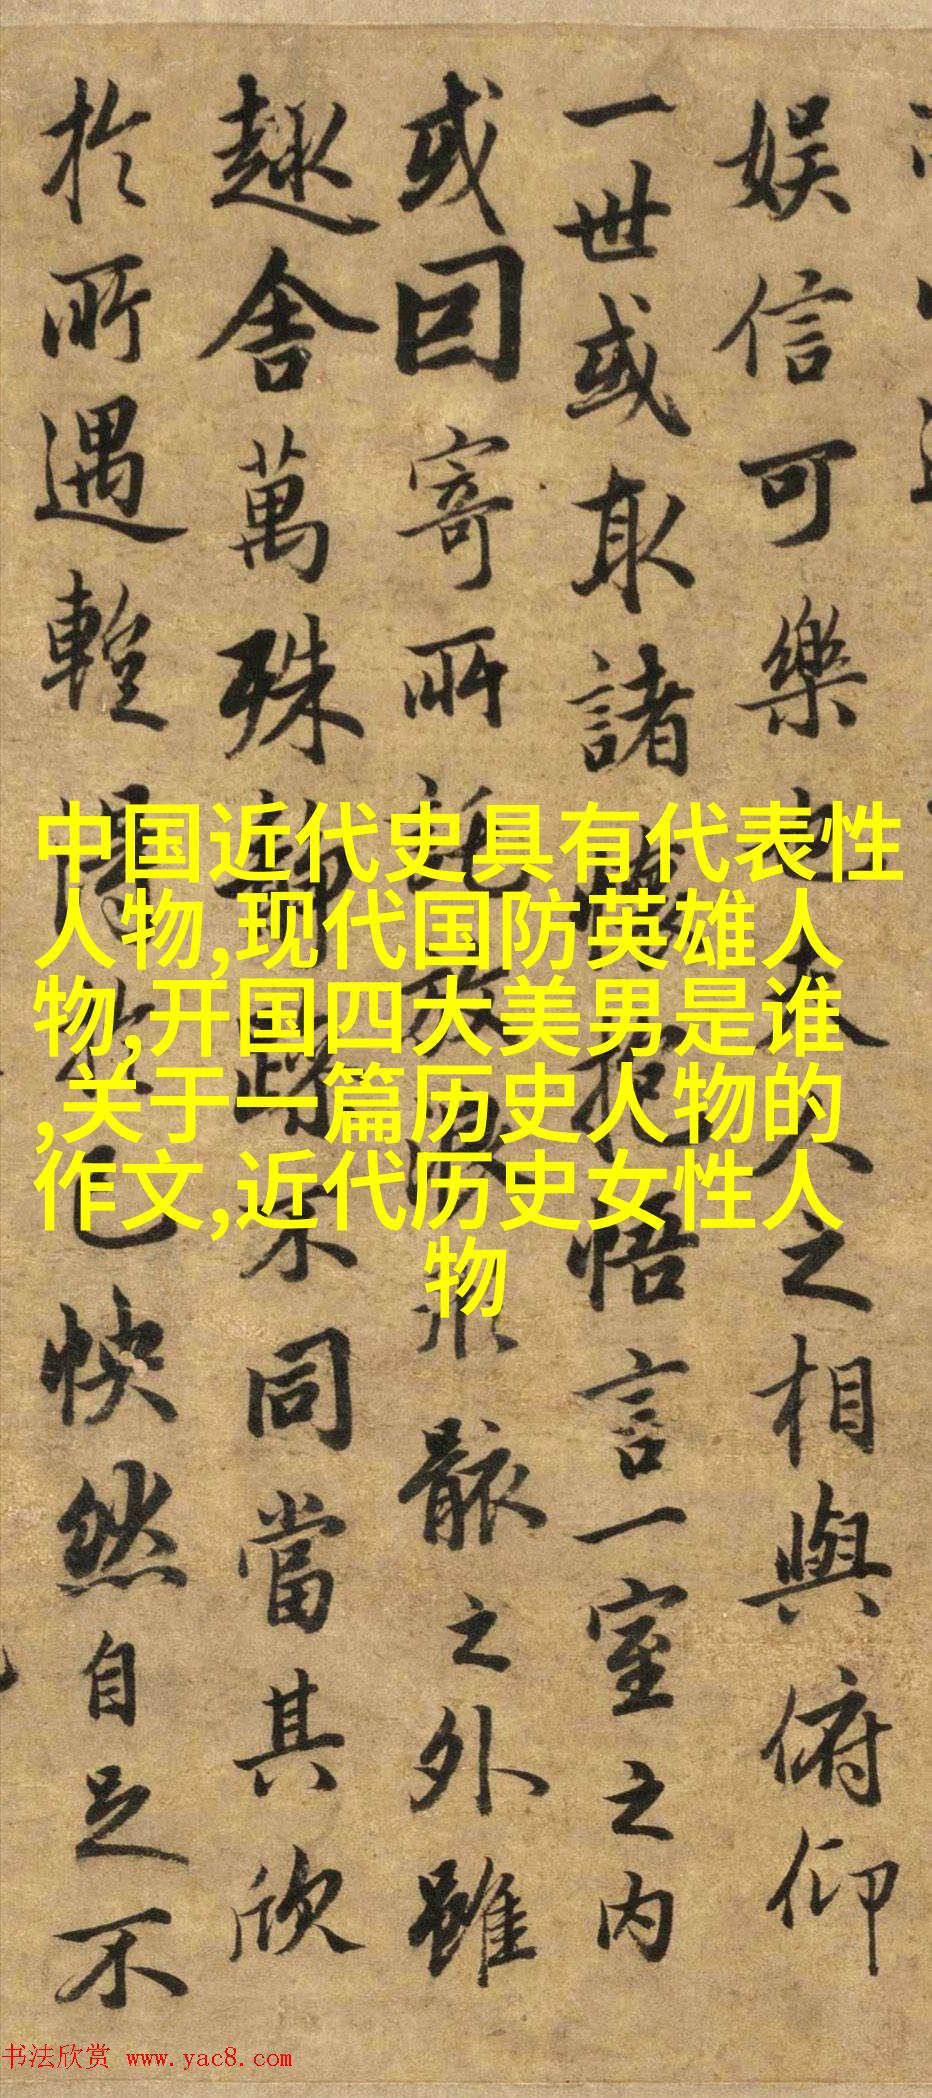 娱信可樂也夫人之相與俯仰
一世或取諸懷抱悟言一室之内
或因寄所託放浪形骸之外雖
趣舍萬殊静躁不同當其欣
於所遇蹔得於己快然自足不
中国近代史具有代表性
人物,现代国防英雄人
物,开国四大美男是谁
,关于一篇历史人物的
作文,近代历史女性人
物
书法欣赏 www.yac8.com